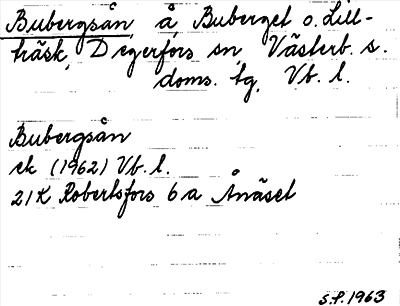 Bubergsån, å, Buberget o. Lill-
träsk, Degerfors sn, Västerb. s.
doms. tg, Vb. l.
Bubergsån
ek (1962) Vb. l.
21K Robertsfors 6a Ånäset
S.P. 1963